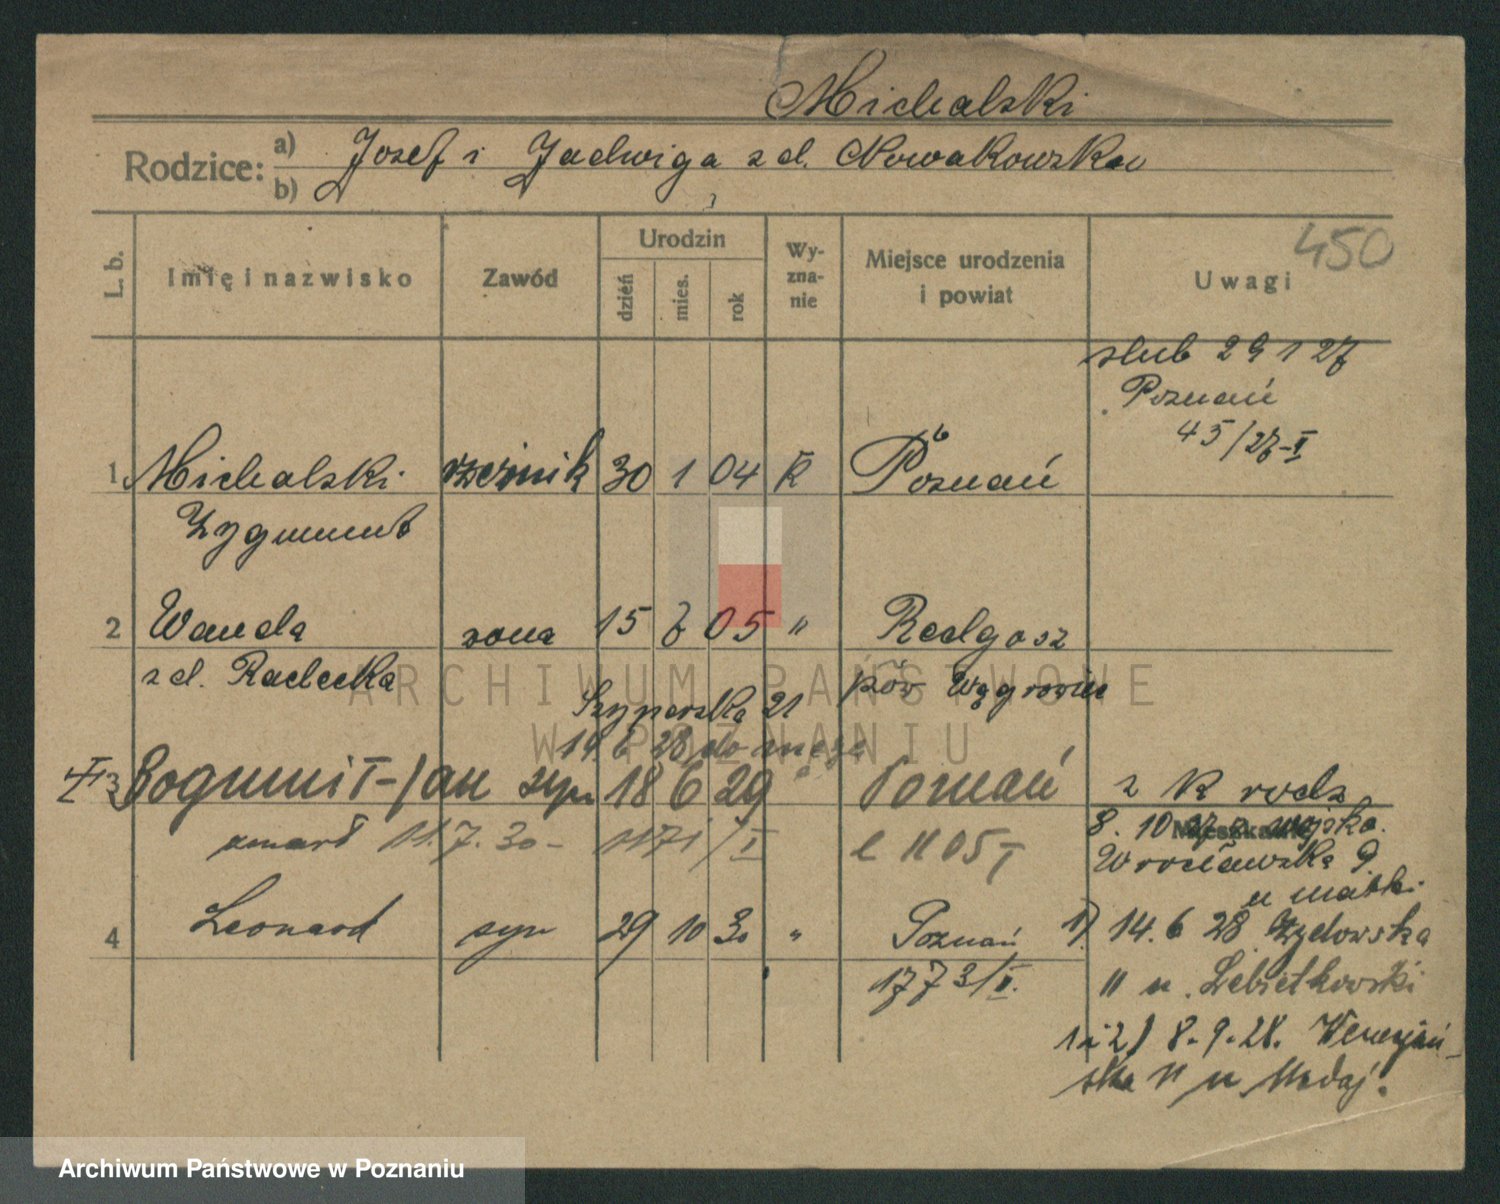 Michalski
Rodzice: a) Josef i Jadwiga z d. Nowakowska
b)
L. b.
Imię i nazwisko
Zawód
Urodzin
dzień
mies.
rok
Wy-
zna-
nie
Miejsce urodzenia
i powiat
Uwagi
450
slub 29 1 27
Poznań
45/27-I
1 Michalski rzeźnik 30 1 04 K Poznań
Zygmunt
2 Wanda żona 15 7 05 " Redgosz
z d. Radecka pów Wągrowiec
Szyperska 21
14 6 28 do męża
3 Bogumił-Jan syn 18 6 29 " Poznań z K rodz
zmarł 11.7.30- 1171/I 1105
8. 10 wojska.
Mieszkanie
Wrocławska 9
u matki
4 Leonard syn 29 10 30 " Poznań
1773/II.
1) 14.6 28 Żydowska
11 u. Lebietkowski
1 i 2) 8.9.28.
ska 11 u
ARCHIWUM PAŃSTWOWE
W POZNANIU
Archiwum Państwowe w Poznaniu